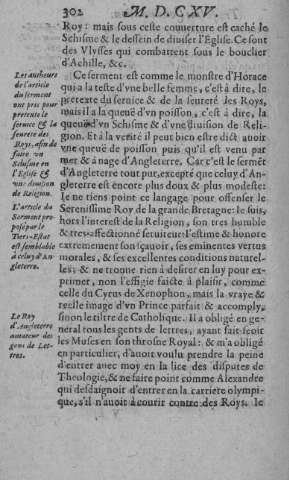 302 M. D. C XV.
Roy: mais sous ceste couuerture est caché le
Schisme & le dessein de diuiser l'Eglise. Ce sont
des Vlysses qui combattent sous le bouclier
d'Achille, &c.
Les autheurs
de l'article
du serment
ont pris pour
pretexte le
seruice & la
seureté des
Roys, afin de
faire vn
Schisme en
l'Eglise &
vne diuision
de Religion.
Ce serment est comme le monstre d'Horace
qui a la teste d'vne belle femme, c'est à dire, le
pretexte du seruice & de la seureté des Roys,
puis il a la queuë d'vn poisson, c'est à dire, la
queuë d'vn Schisme & d'vne diuision de Reli-
gion. Et à la verité il peut bien estre dict auoir
vne queuë de poisson puis qu'il est venu par
mer & à nage d'Angleterre. Car c'est le sermēt
d'Angleterre tout pur, excepté que celuy d'An-
gleterre est encore plus doux & plus modeste:
L'article du
Serment pro-
posé par le
Tiers-Estat
est semblable
à celuy d'An-
gleterre.
Ie ne tiens point ce langage pour offenser le
Serenissime Roy de la grande Bretagne: Ie suis,
hors l'interest de la Religion, son tres humble
& tres-affectionné seruiteur: l'estime & honore
extremement son sçauoir, ses eminentes vertus
morales, & ses excellentes conditions naturel-
les; & ne trouue rien à desirer en luy pour ex-
primer, non l'effigie faicte à plaisir, comme
celle du Cyrus de Xenophon, mais la vraye &
reelle image d'vn Prince parfait & accomply,
sinon le tiltre de Catholique. Il a obligé en ge-
Le Roy
d'Angleterre
amateur des
gens de Let-
tres.
neral tous les gens de lettres, ayant fait seoir
les Muses en son throsne Royal: & m'a obligé
en particulier, d'auoir voulu prendre la peine
d'entrer auec moy en la lice des disputes de
Theologie, & ne faire point comme Alexandre
qui desdaignoit d'entrer en la carriere olympi-
que, s'il n'auoit à courir contre des Roys. Ie